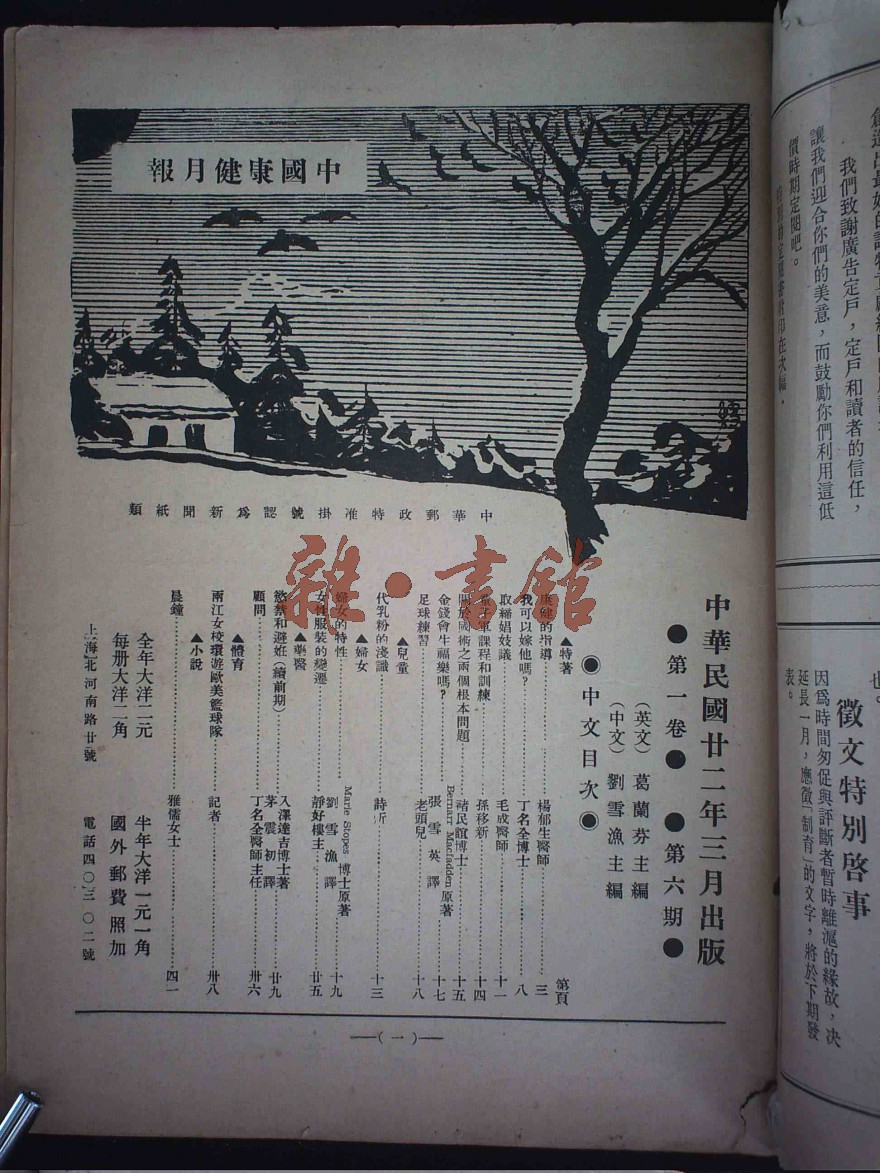 中國健康月報
中華郵政特准掛號認爲新聞紙類
中華民國廿二年三月出版
●第一卷● ●第六期●
（英文）葛蘭芬主編
（中文）劉雪漁主編
◉中文目次◉
第頁
▲特著
康健的指導……楊郁生醫師……三
我可以嫁他嗎？……丁名全博士……八
取締娼妓議……毛成醫師……十一
童子軍課程和訓練……孫移新……十四
關於國術之兩個根本問題……褚民誼博士……十五
金錢會生福樂嗎？……Bernarr Macfadden原著 張雪英譯……十七
足球練習……老頭兒……十八
▲兒童
代乳粉的淺識……詩忻……十三
▲婦女
婦女的特性……Marie Stopes博士原著 劉雪漁譯……十九
女性服裝的變遷……靜好樓主……廿五
▲藥醫
慾禁和避姙（續前期）……入澤達吉博士著 茅震初譯……廿九
顧問……丁名全醫師主任……卅六
▲體育
兩江女校環遊歐美籃球隊……記者……卅八
▲小說
晨鐘……雅儒女士……四一
全年大洋二元 半年大洋一元一角
每册大洋二角 國外郵費照加
上海北河南路廿號 電話四〇三〇二號
—（一）—
雜·書館
我們致謝廣告定戶，定戶和讀者的信任，
讓我們迎合你們的美意，而鼓勵你們利用這低
價時期定閱吧。
也。
徵文特別啓事
因爲時間匆促與評斷者暫時離滬的緣故，决
延長一月，應徵「制育」的文字，將於下期發
表。